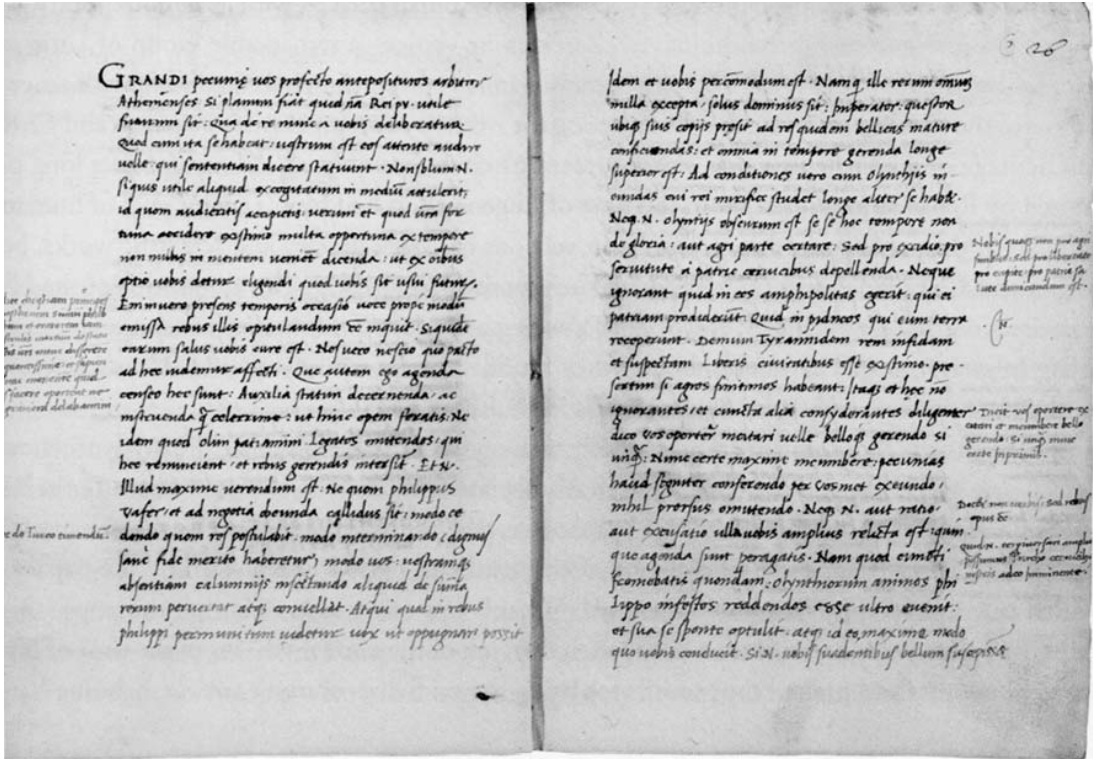 GRANDI pecunię vos profecto anteposituros arbitror
Athenienses si planum fiat quid nā Rei pu. utile
futurum sit: Qua de re nunc vobis deliberatur
Quod cum ita se habeat: uestrum est eos attente audire
velle qui sententiam dicere statuunt. Non solum N.
si quis utile aliquid excogitatum in mediū attulerit,
id quom audieritis accipietis: verum et quod ūra for
tuna accidere existimo multa opportuna ex tempore
non nullis in mentem venient dicenda: ut ex oībus
optio vobis detur eligendi quod vobis sit usui futurū.
Enimuero presens temporis occasio voce prope modū
emissa rebus illis opitulandum eē inquit. Siquidē
earum salus vobis cure est. Nos uero nescio quo pacto
ad hec uidemur affecti. Que autem ego agenda
censeo hec sunt: Auxilia statim decernenda, ac
instruenda q̄ celerrime: ut hinc opem feratis. Ne
idem quod olim patiamini. Legatos mittendos: qui
hec renuncient, et rebus gerendis intersit. Et N.
Illud maxime verendum est. Ne quom philippus
Vafer, et ad negotia obeunda callidus sit: modo ce
dendo quom res postulabit. modo interminando (dignus
sane fide merito haberetur) modo uos: uestramq;
absentiam calumnijs insectando aliquid de suma
rerum peruertat atq; conuellat. Atqui quod in rebus
philippi permunitum uidetur vix ut oppugnari possit
26
Idem et uobis percōmodum est. Namq; ille rerum omniū
nulla excepta, solus dominus sit: Imperator: questor
ubiq; suis copijs presit ad res quidem bellicas mature
conficiendas: et omnia in tempore gerenda longe
superior est: Ad conditiones vero cum Olynthijs in
eundas cui rei mirifice studet longe aliter se habet.
Neq; N. Olyntijs obscurum est se se hoc tempore non
de gloria: aut agri parte certare: Sed pro excidio, pro
seruitute a patrie ceruicibus depellenda. Neque
ignorant quid in eos amphipolitas egerit: qui ei
patriam prodiderūt. Quid in pidneos qui eum terra
receperunt. Demum Tyrannidem rem infidam
et suspectam Liberis ciuitatibus esse existimo. pre
sertim si agros finitimos habeant: Itaq; et hec nō
ignorantes, et cuncta alia consyderantes diligenter
dico vos oportere incitari uelle belloq; gerendo si
unq̄: Nunc certe maxime incumbere: pecunias
haud segniter conferendo per vos met exeundo,
nihil prorsus omittendo. Neq; N. aut ratio
aut excusatio ulla uobis amplius relicta est quin
que agenda sunt peragatis. Nam quod
quondam: Olynthiorum animos phi
lippo infestos reddendos esse ultro euenit:
et sua se sponte optulit, atq; id eo maxime modo
quo uobis conducit. Si N. uobis suadentibus bellum
pro capite, pro patria sa
lute dimicandum est.
Dicit vos oportere ex
citari et incumbere bello
gerendo: si unq̄ nunc